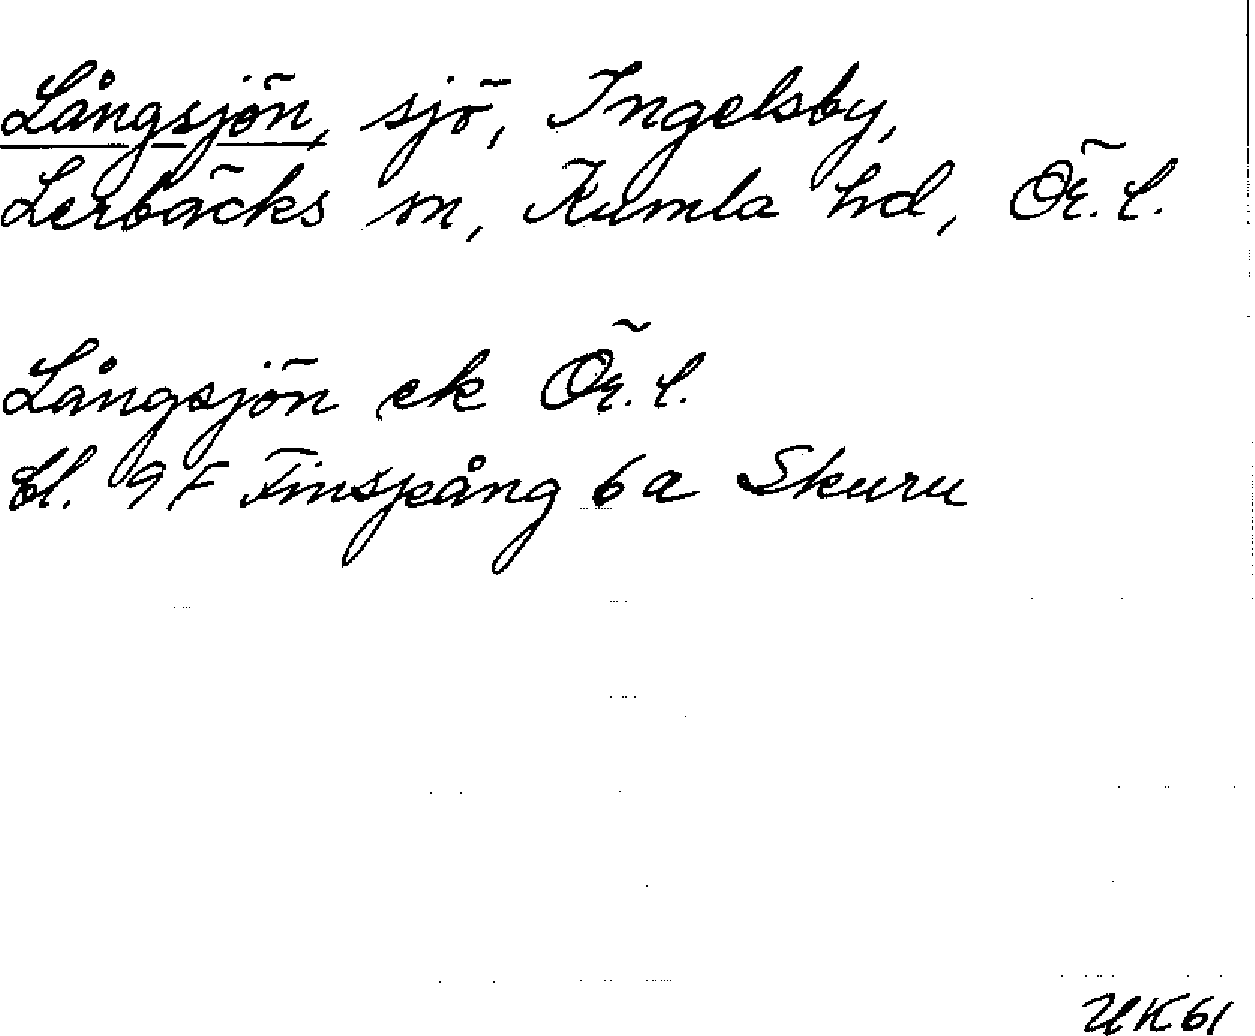 Långsjön, sjö, Ingelsby,
Lerbäcks sn, Kumla hd, Ör. l.
Långsjön ek Ör. l.
bl. 9F Finspång 6a Skuru
UK61